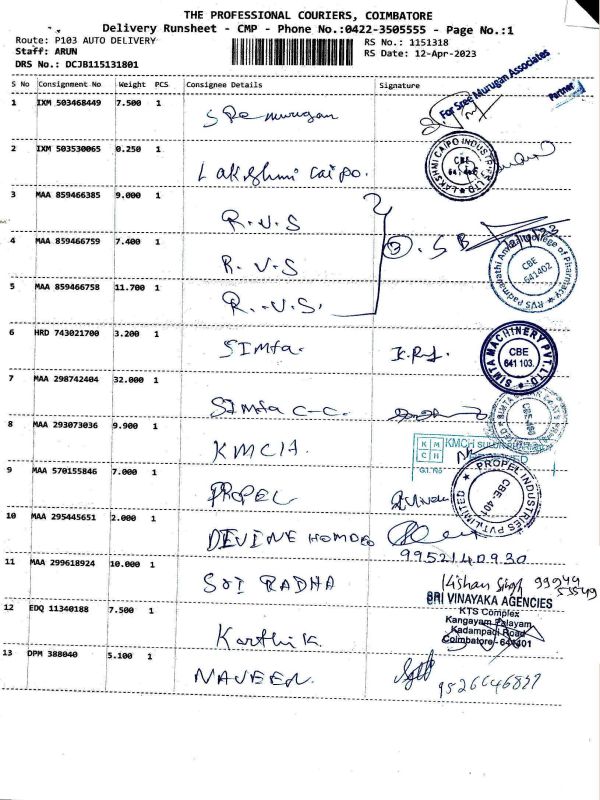 THE PROFESSIONAL COURIERS, COIMBATORE
Delivery Runsheet - CMP - Phone No.:0422-3505555 - Page No.:1
Route: P103 AUTO DELIVERY RS No.: 1151318
Staff: ARUN RS Date: 12-Apr-2023
DRS No.: DCJB115131801
S No Consignment No Weight PCS Consignee Details Signature
For Sree Murugan Associates
Partner
1 IXM 503468449 7.500 1 S Re murugan
2 IXM 503530065 0.250 1 Lakshmi Caipo.
LAKSHMI CAIPO INDUSTRIES CBE 641
3 MAA 859466385 9.000 1 R.V.S
4 MAA 859466759 7.400 1 R.V.S
3. S B
RVS Padmavathi Ammal College of Pharmacy CBE 641402
5 MAA 859466758 11.700 1 R.V.S.
6 HRD 743021700 3.200 1 SImta.
SIMTA MACHINERY PVT. LTD. CBE 641 103.
7 MAA 298742404 32.000 1 SImta C-C.
8 MAA 293073036 9.900 1 KMCH
KMCH SULUR
9 MAA 570155846 7.000 1 PROPEL
PROPEL INDUSTRIES PVT. LIMITED CBE-401
10 MAA 295445651 2.000 1 DIVINE HOMOEO
9952140930
11 MAA 299618924 10.000 1 SRI RADHA Kishan Singh 99949
53549
SRI VINAYAKA AGENCIES
KTS Complex
Kangayam Palayam
Kadampadi Road
Coimbatore - 641401
12 EDQ 11340188 7.500 1 Karthik
13 DPM 388040 5.100 1 NAVEEN.